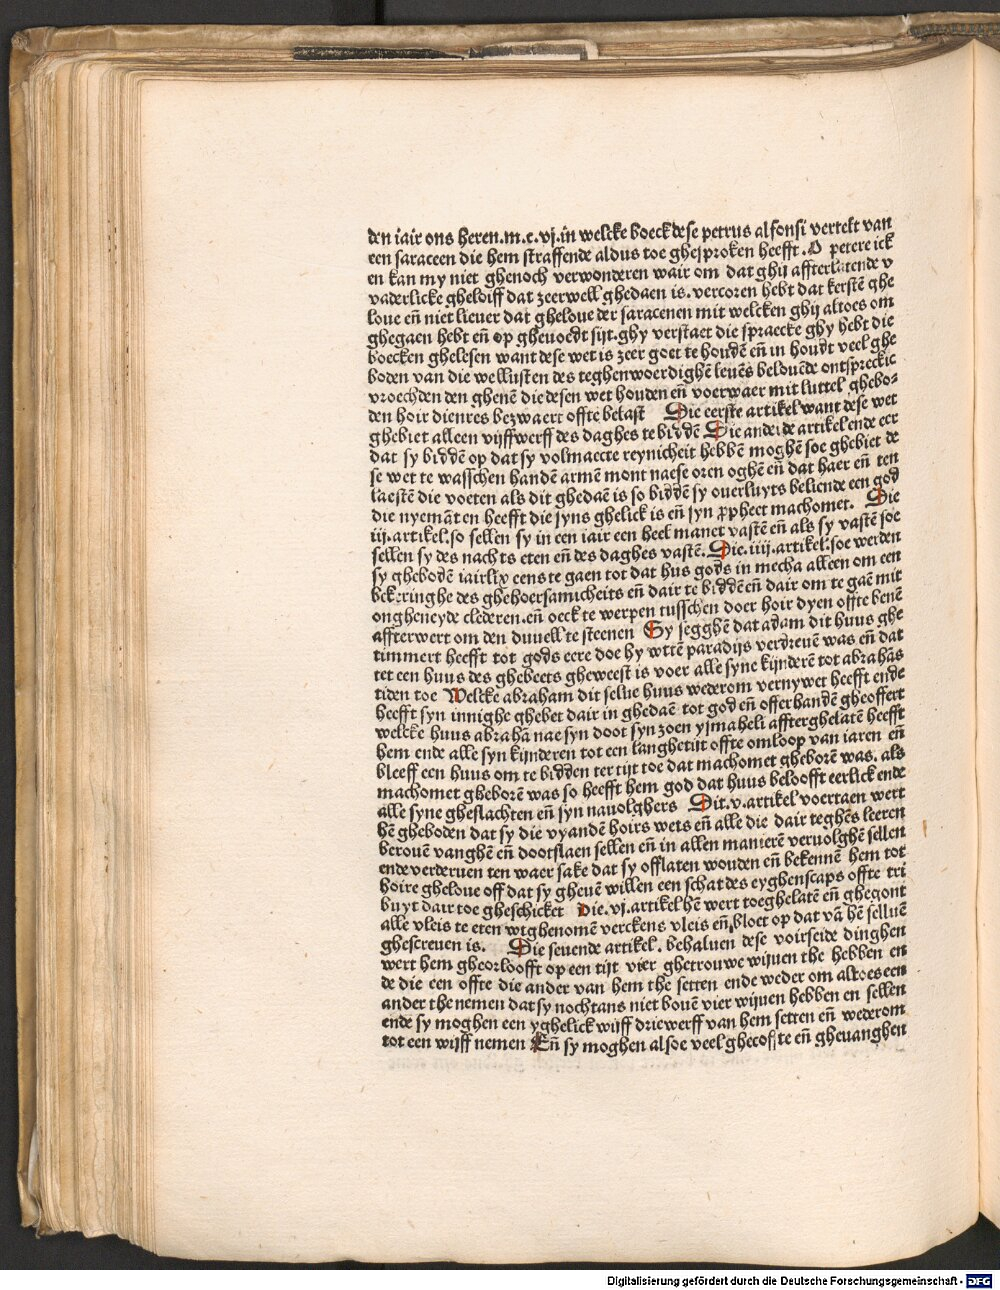 den iair ons heren.m.c.vj.in welcke boeck dese petrus alfonsi vertelt van
een saraceen die hem straffende aldus toe ghesproken heefft. O petere ick
en kan my niet ghenoch verwonderen wair om dat ghij affterlatende v
vaderlicke gheloiff dat zeerwell ghedaen is.vercoren hebt dat kerstē ghe
loue eñ niet lieuer dat gheloue der saracenen mit welcken ghij altoes om
ghegaen hebt eñ op gheuoedt sijt.ghy verstaet die spraecke ghy hebt die
boecken ghelesen want dese wet is zeer goet te houdē eñ in houdt veel ghe
boden van die wellusten des teghenwoerdighē leuēs belouēde ontspreckic
vroechden den ghenē die desen wet houden eñ voerwaer mit luttel ghebo-
den hoir dienres bezwaert offte belast Die eerste artikel want dese wet
ghebiet alleen vijffwerff des daghes te biddē Die andeide artikel ende eer
dat sy biddē op dat sy volmaecte reynicheit hebbē moghē soe ghebiet de
se wet te wasschen handē armē mont naese oren oghē eñ dat haer eñ ten
laestē die voeten als dit ghedaē is so biddē sy ouerluyts beliende een god
die nyemāt en heefft die syns ghelick is eñ syn ꝓpheet machomet. Die
iij.artikel.so sellen sy in een iair een heel manet vastē eñ als sy vastē soe
sellen sy des nachts eten eñ des daghes vastē.Die.iiij.artikel.soe werden
sy ghebodē iairlix eens te gaen tot dat hus gods in mecha alleen om een
bekeringhe des gheboersamicheits eñ dair te biddē eñ dair om te gaē mit
ongheneyde clederen.eñ oeck te werpen tusschen doer hoir dyen offte benē
affterwert om den duuell te steenen Sy segghē dat adam dit huus ghe
timmert heefft tot gods eere doe hy wtē paradijs verdreuē was eñ dat
tet een huus des ghebeets gheweest is voer alle syne kijnderē tot abrahās
tiden toe Welcke abraham dit selue huus wederom vernywet heefft ende
heefft syn innighe ghebet dair in ghedaē tot god eñ offerhandē gheoffert
welcke huus abrahā nae syn doot syn zoen ysmaheli affterghelatē heefft
hem ende alle syn kijnderen tot een langhe tijt offte omloop van iaren eñ
bleeff een huus om te bidden ter tijt toe dat machomet gheborē was. als
machomet gheborē was so heefft hem god dat huus beloofft eerlick ende
alle syne gheslachten eñ syn nauolghers Dit.v.artikel voertaen wert
hē gheboden dat sy die vyandē hoirs wets eñ alle die dair teghēs leeren
berouē vanghē eñ dootslaen sellen eñ in allen manierē veruolghē sellen
ende verderuen ten waer sake dat sy offlaten wouden eñ bekennē hem tot
hoire gheloue off dat sy gheuē willen een schat des eyghenscaps offte tri
buyt dair toe gheschicket Die.vj.artikel hē wert toeghelatē eñ ghegont
alle vleis te eten wtghenomē verckens vleis eñ bloet op dat vā hē seluē
ghescreuen is. Die seuende artikel. behaluen dese voirseide dinghen
wert hem gheorloofft op een tijt vier ghetrouwe wijuen the hebben en
de die een offte die ander van hem the setten ende weder om altoes een
ander the nemen dat sy nochtans niet bouē vier wijuen hebben en sellen
ende sy moghen een yghelick wijff driewerff van hem setten eñ wederom
tot een wijff nemen Eñ sy moghen alsoe veel ghecofte eñ gheuanghen
Digitalisierung gefördert durch die Deutsche Forschungsgemeinschaft - DFG